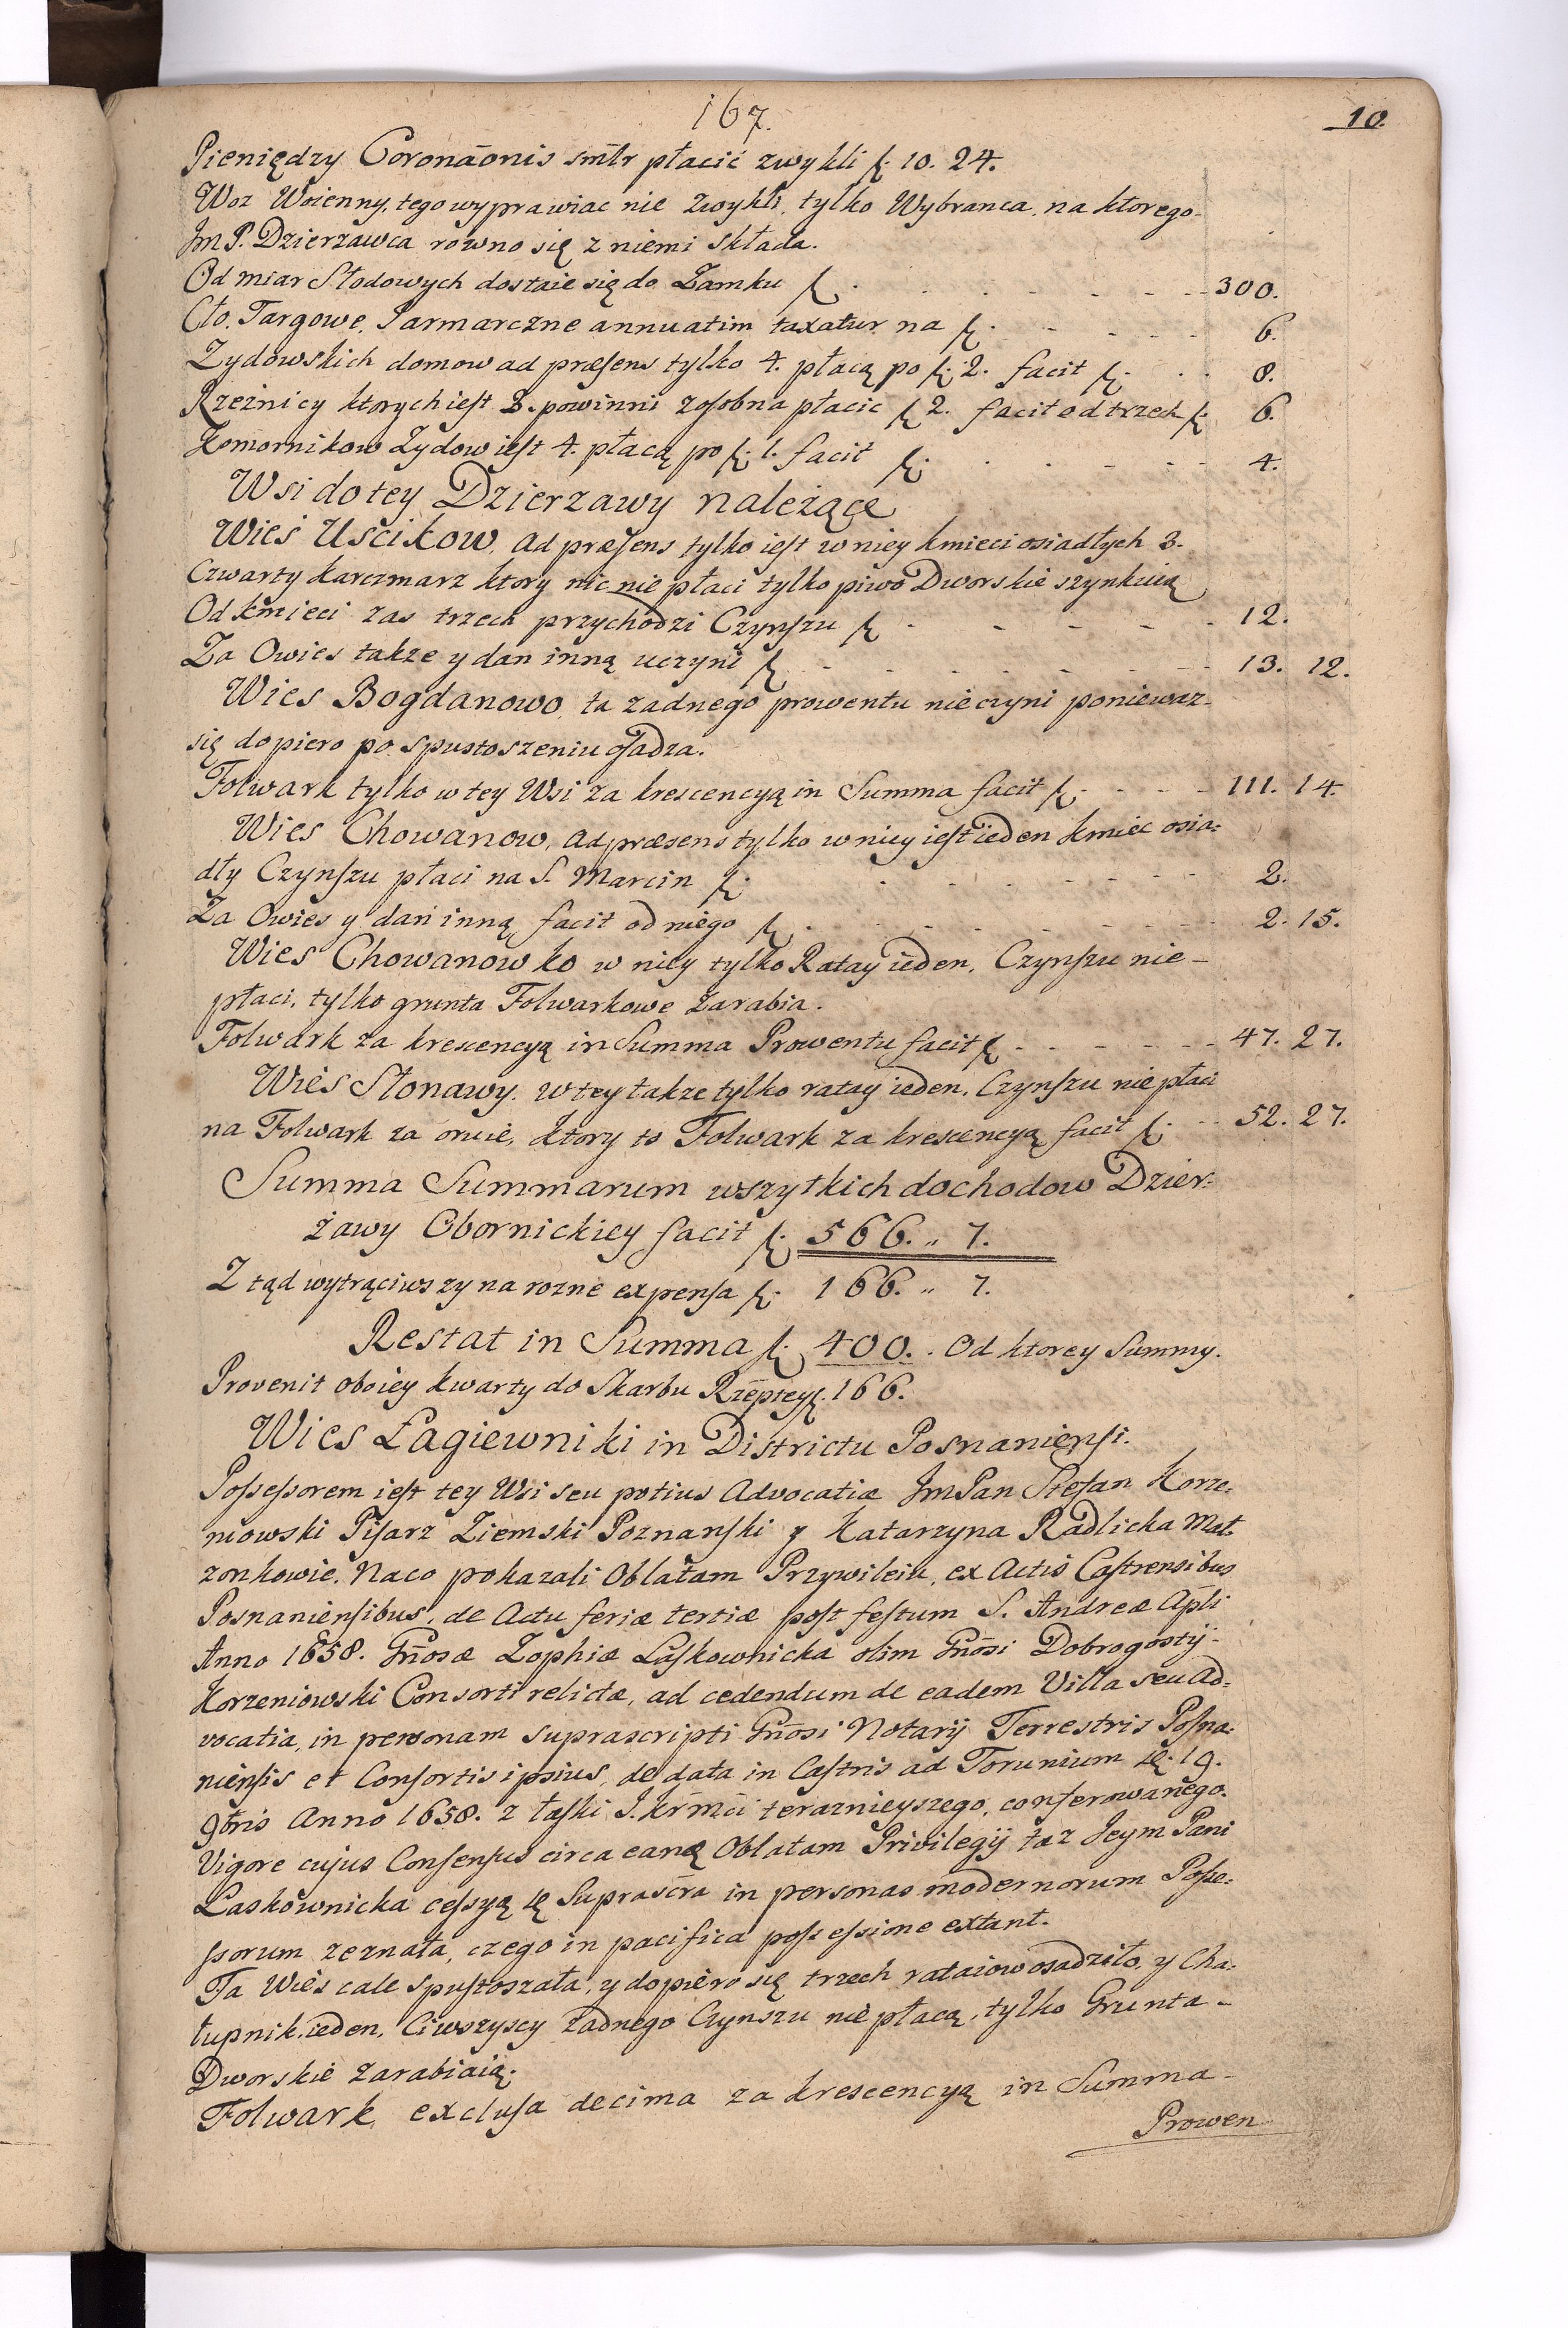 167.
10.
Pieniędzy Coronāonis smlr płacić zwykli f. 10. 24.
Woz Woienny, tego wyprawiac nie zwykli, tylko Wybranca, na ktorego
Jm P. Dzierzawca rowno się z niemi składa.
Od miar Słodowych dostaie się do Zamku f. 300.
Cło, Targowe, Jarmarczne annuatim taxatur na f. 6.
Zydowskich domow ad præsens tylko 4. płacą po f. 2. facit f. 8.
Rzeźnicy ktorych iest 3. powinni zosobna płacic f. 2. facit od trzech f. 6.
Komornikow Zydow iest 4. płacą po f. 1. facit f. 4.
Wsi do tey Dzierzawy należące
Wieś Uscikow, ad præsens tylko iest w niey kmieci osiadłych 3.
Czwarty karczmarz ktory nic nie płaci tylko piwo Dworskie szynkuią
Od kmieci zas trzech przychodzi Czynszu f. 12.
Za Owies takze y dan inną uczyni f. 13. 12.
Wies Bogdanowo, ta zadnego prowentu nie czyni poniewaz
się dopiero po spustoszeniu osadza.
Folwark tylko w tey Wsi za krescencyą in Summa facit f. 111. 14.
Wies Chowanow, ad præsens tylko w niey iest ieden kmiec osia:
dły Czynszu płaci na S. Marcin f. 2.
Za Owies y dań inną facit od niego f. 2. 15.
Wies Chowanowko w niey tylko Ratay ieden, Czynszu nie-
płaci, tylko grunta Folwarkowe zarabia.
Folwark za krescencyą in Summa Prowentu facit f. 47. 27.
Wies Słonawy, w tey takze tylko ratay ieden, Czynszu nie płaci
na Folwark za oruie, ktory to Folwark za krescencyą facit f. 52. 27.
Summa Summarum wszytkich dochodow Dzier:
żawy Obornickiey facit f. 566. „ 7.
Z tąd wytrąciwszy na rozne expensa f. 166. „ 7.
Restat in Summa f. 400. Od ktorey Summy.
Provenit oboiey kwarty do Skarbu Rzeptey f. 166.
Wies Łagiewniki in Districtu Posnaniensi.
Possessorem iest tey Wsi seu potius Advocatiæ Jm Pan Stefan Korze:
niowski Pisarz Ziemski Poznanski y Katarzyna Radlicka Mał:
zonkowie. Na co pokazali Oblatam Przywileiu, ex Actis Castrensibus
Posnaniensibus, de Actu feriæ tertiæ post festum S. Andreæ Apli
Anno 1658. Gnosæ Zophiæ Laskownicka olim Gnosi Dobrogosty
Korzeniowski Consorti relictæ, ad cedendum de eadem Villa seu ad:
vocatia, in personam suprascripti Gnosi Notarij Terrestris Posna:
niensis et Consortis ipsius, de data in Castris ad Torunium 19.
9bris Anno 1658. z łaski J. krmci teraznieyszego, conferowanego.
Vigore cujus Consensus circa eanq Oblatam Privilegij taz Jeym Pani
Laskownicka cessyą tę Suprascra in personas modernorum Posse:
ssorum zeznała, czego in pacifica possessione extant.
Ta Wieś cale spustoszała, y dopiero się trzech rataiow osadziło, y Cha:
łupnik ieden, Ci wszyscy zadnego Czynszu nie płacą, tylko Grunta
Dworskie zarabiaią.
Folwark, exclusa decima za krescencyą in Summa
Prowen